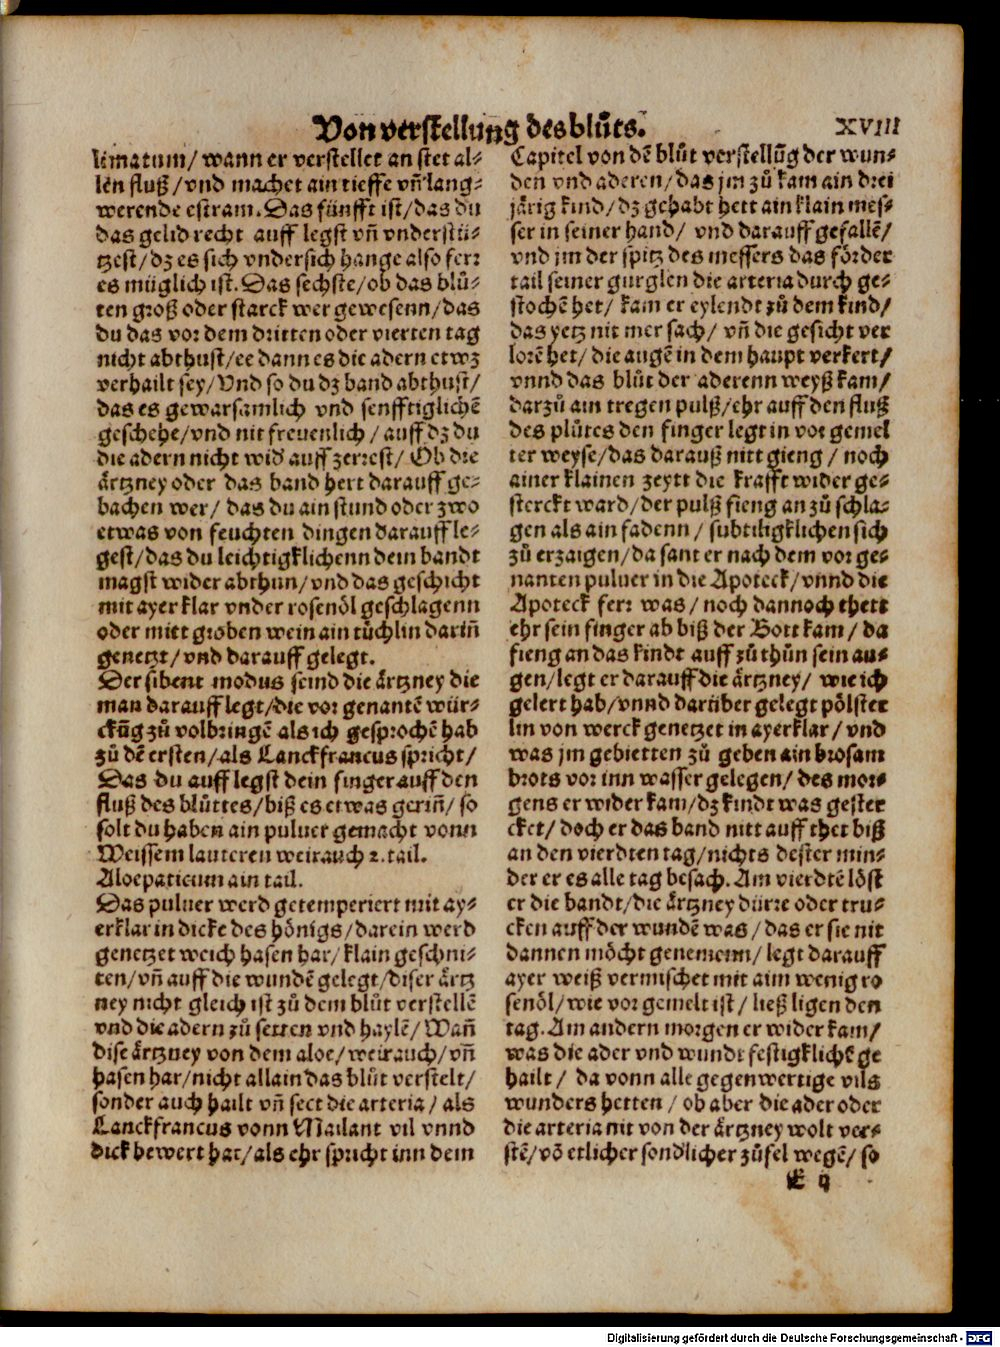 Von verstellung des blůts.
XVIII
limatum/ wann er verstellet an stet al⸗
len fluß/ vnd machet ain tieffe vñ lang⸗
werende estram. Das fünfft ist/ das du
das gelid recht auff legst vñ vnderstü⸗
tzest/ dz es sich vndersich hange also ferꝛ
es müglich ist. Das sechste/ ob das blů⸗
ten groß oder starck wer gewesenn/ das
du das vor dem dritten oder vierten tag
nicht abthust/ ee dann es die adern etwz
verhailt sey/ Vnd so du dz band abthust/
das es gewarsamlich vnd senfftiglichē
geschehe/ vnd nit freuenlich/ auff dz du
die adern nicht wid̕ auff zerrest/ Ob die
ärtzney oder das band hert darauff ge⸗
bachen wer/ das du ain stund oder zwo
etwas von feuchten dingen darauff le⸗
gest/ das du leichtigklichenn dein bandt
magst wider abthun/ vnd das geschicht
mit ayer klar vnder rosenöl geschlagenn
oder mitt groben wein ain tüchlin dariñ
genetzt/ vnd darauff gelegt.
Der sibent modus seind die ärtzney die
man darauff legt/ die vor genantē wür⸗
ckūg zů volbringē als ich gesprochē hab
zů dē ersten/ als Lanckfrancus spricht/
Das du auff legst dein finger auff den
fluß des blůttes/ biß es etwas geriñ/ so
solt du haben ain puluer gemacht vonn
Weissem lauteren weirauch 2. tail.
Aloepaticum ain tail.
Das puluer werd getemperiert mit ay⸗
erklar in dicke des hönigs/ darein werd
genetzet weich hasen har/ klain geschni⸗
ten/ vñ auff die wundē gelegt/ diser ärtz
ney nicht gleich ist zů dem blůt verstellē
vnd die adern zů setten vnd haylē/ Wañ
dise ärtzney von dem aloe/ weirauch/ vñ
hasen har/ nicht allain das blůt verstelt/
sonder auch hailt vñ sect die arteria/ als
Lanckfrancus vonn Mailant vil vnnd
dick bewert hat/ als ehr spricht inn dem
Capitel von dē blůt verstellūg der wun⸗
den vnd aderen/ das jm zů kam ain drei
järig kind/ dz gehabt hett ain klain mes⸗
ser in seiner hand/ vnd darauff gefallē/
vnd jm der spitz des messers das förder
tail seiner gurglen die arteria durch ge⸗
stochē het/ kam er eylendt zů dem kind/
das yetz nit mer sach/ vñ die gesicht ver
lorē het/ die augē in dem haupt verkert/
vnnd das blůt der aderenn weyß kam/
darzů ain tregen pulß/ ehr auff den fluß
des plůtes den finger legt in vor gemel
ter weyse/ das darauß nitt gieng/ noch
ainer klainen zeytt die krafft wider ge⸗
sterckt ward/ der pulß fieng an zů schla⸗
gen als ain fadenn/ subtiligklichen sich
zů erzaigen/ da sant er nach dem vor ge⸗
nanten puluer in die Apoteck/ vnnd die
Apoteck ferꝛ was/ noch dannoch thett
ehr sein finger ab biß der Bott kam/ da
fieng an das kindt auff zů thůn sein au⸗
gen/ legt er darauff die ärtzney/ wie ich
gelert hab/ vnnd darüber gelegt pölster
lin von werck genetzet in ayerklar/ vnd
was jm gebietten zů geben ain brosam
brots vor inn wasser gelegen/ des mor⸗
gens er wider kam/ dz kindt was gester
cket/ doch er das band nitt auff thet biß
an den vierdten tag/ nichts dester min⸗
der er es alle tag besach. Am vierdtē löst
er die bandt/ die ärtzney dürre oder tru⸗
cken auff der wundē was/ das er sie nit
dannen möcht genemenn/ legt darauff
ayer weiß vermischet mit aim wenig ro
senöl/ wie vor gemelt ist/ ließ ligen den
tag. Am andern morgen er wider kam/
was die ader vnd wunde festigklichē ge
hailt/ da vonn alle gegenwertige vils
wunders hetten/ ob aber die ader oder
die arteria nit von der ärtzney wolt ver⸗
stē/ vō etlicher sond̕licher zůfel wegē/ so
E ij
Digitalisierung gefördert durch die Deutsche Forschungsgemeinschaft - DFG